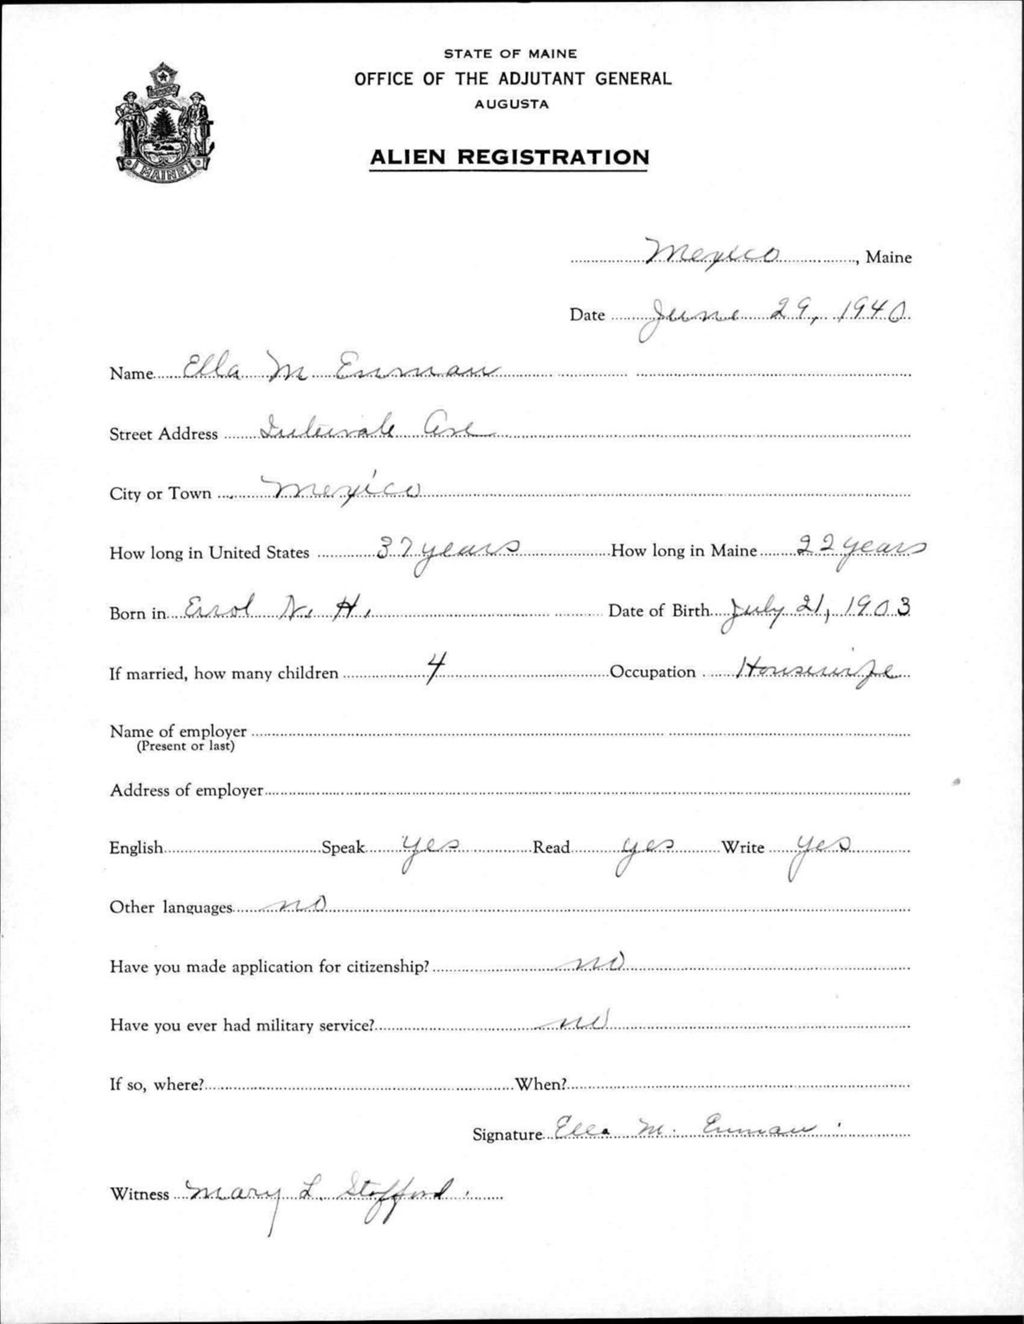 STATE OF MAINE
OFFICE OF THE ADJUTANT GENERAL
AUGUSTA
MAINE
ALIEN REGISTRATION
Mexico, Maine
Date June 29, 1940
Name Ella M Enman
Street Address Intervale Ave
City or Town Mexico
How long in United States 37 years How long in Maine 22 years
Born in Errol N. H. Date of Birth July 21, 1903
If married, how many children 4 Occupation Housewife
Name of employer
(Present or last)
Address of employer
English Speak yes Read yes Write yes
Other languages no
Have you made application for citizenship? no
Have you ever had military service? no
If so, where? When?
Signature Ella M. Enman
Witness Mary L. Stofford